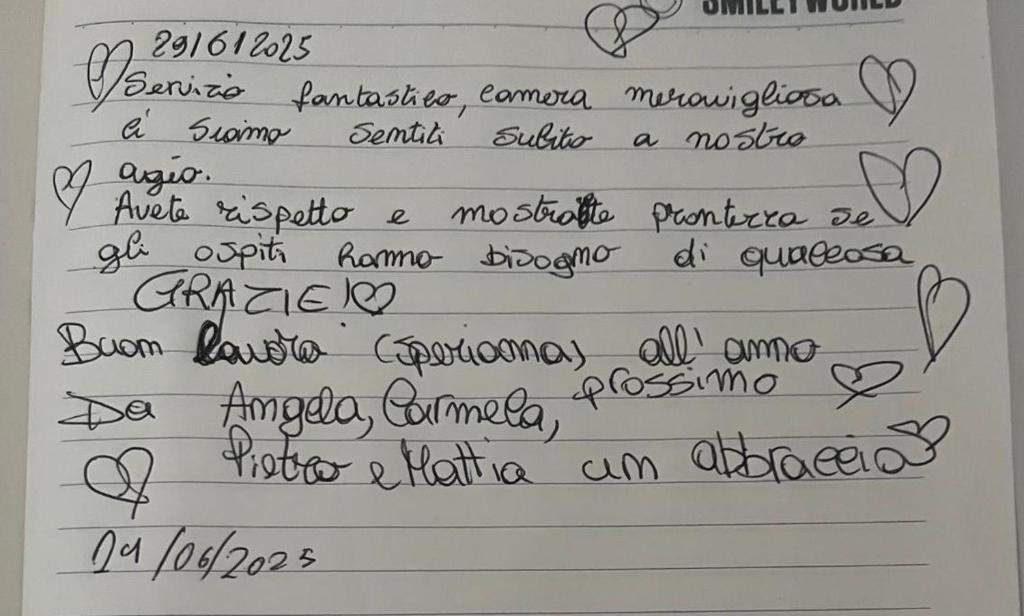 SMILEYWORLD
29/6/2025
Servizio fantastico, camera meravigliosa
ci siamo sentiti subito a nostro
agio.
Avete rispetto e mostrate prontezza se
gli ospiti hanno bisogno di qualcosa
GRAZIE!
Buon lavoro (speriamo) all'anno
prossimo
Da Angela, Carmela,
Pietro e Mattia un abbraccio
29/06/2025